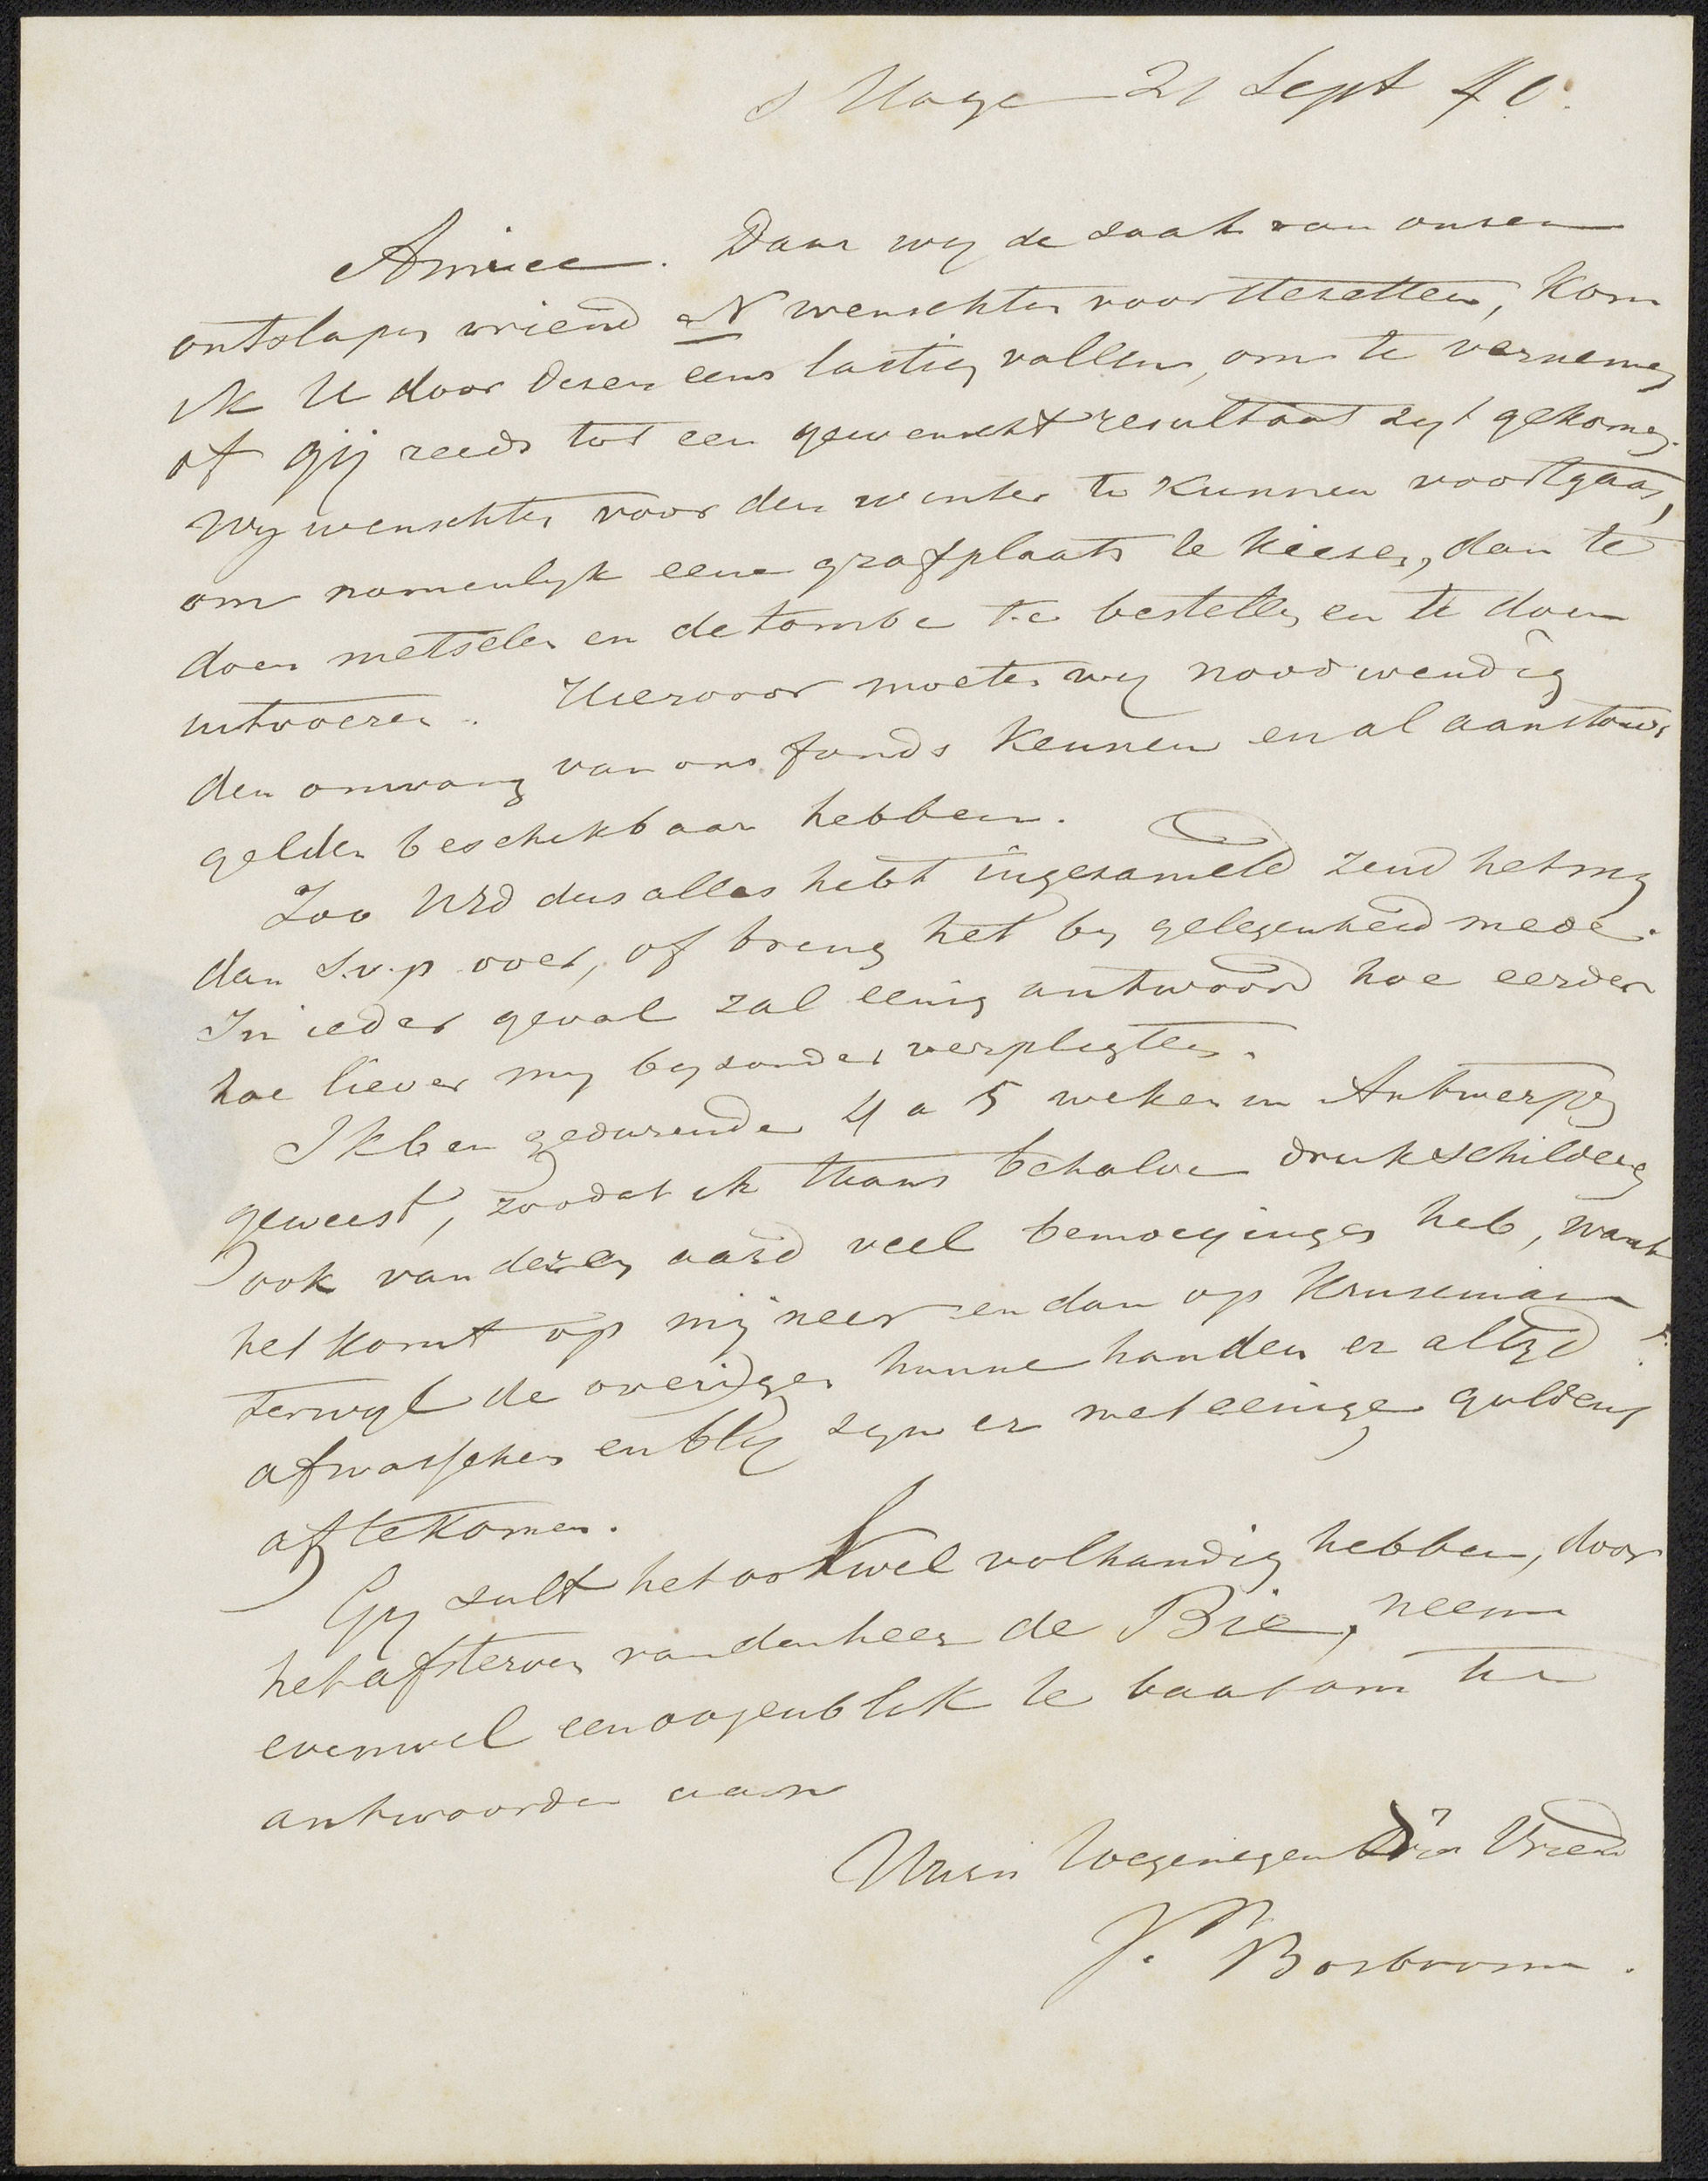 s Hage 21 Sept 40.
Amice. Daar wy de zaak van onzen
ontslapen vriend N wenschten voorttezetten, kom
ik U door dezen eens lastig vallen, om te vernemen
of gij reeds tot een gewenscht resultaat zyt gekomen.
Wy wenschten voor den winter te kunnen voortgaan,
om namenlyk eene grafplaats te kiezen, dan te
doen metselen en de tombe te bestellen en te doen
uitvoeren. Hiervoor moeten wy noodwendig
den omvang van ons fonds kennen en al aanstonds
gelden beschikbaar hebben.
Zoo UEd dus alles hebt ingezameld zend het my
dan s.v.p over, of breng het by gelegenheid mede.
In ieder geval zal eenig antwoord hoe eerder
hoe liever my byzonder verpligten.
Ik ben gedurende 4 a 5 weken in Antwerpen
geweest, zoodat ik thans behalve druk schilderen
ook van dezen aard veel bemoeijingen heb, want
het komt op mij neer en dan op Kruseman
terwyl de overigen hunne handen er altyd
afwasschen en bly zyn er met eenige guldens
aftekomen.
Gy zult het ook wel volhandig hebben, door
het afsterven van den heer de Bie, neem
evenwel een oogenblik te baat om te
antwoorden aan
Uwen toegenegen Vriend
J. Bosboom.